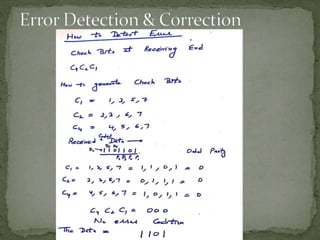 Error Detection & Correction
How to Detect Error
Check Bits at Receiving End
C4 C2 C1
How to generate Check Bits
C1 = 1, 3, 5, 7
C2 = 2, 3, 6, 7
C4 = 4, 5, 6, 7
Received Data
1101101 Odd Parity
C1 = 1, 3, 5, 7 = 1, 1, 0, 1 = 0
C2 = 2, 3, 6, 7 = 0, 1, 1, 1 = 0
C4 = 4, 5, 6, 7 = 1, 0, 1, 1 = 0
C4 C2 C1 = 000
No error Condition
The Data = 1101